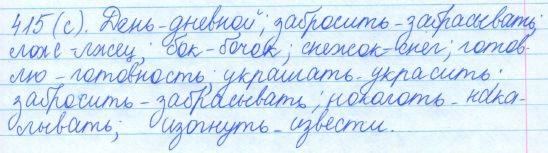 415 (с). День-дневной; забросить-забрасывать;
ложь-лжец; бок-бочок; снежок-снег; готов-
лю-готовность; украшать-украсить;
забросить-забрасывать; наколоть-нака-
лывать; изогнуть-извести.